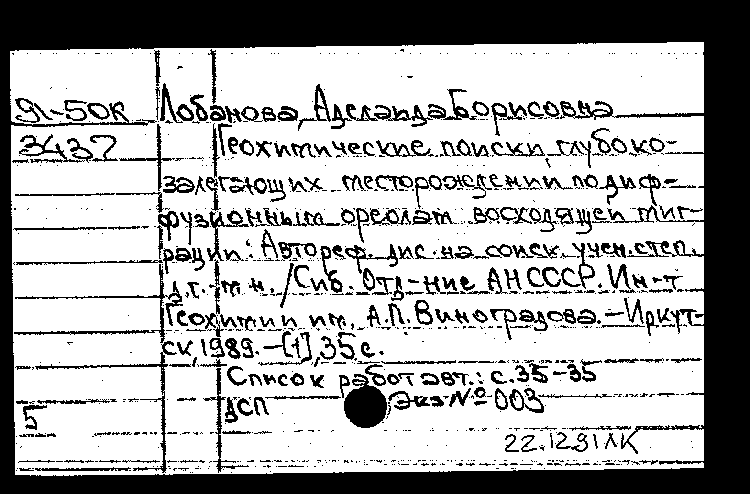 91-50К Лобанова, Аделаида Борисовна
3437 Геохимические поиски глубоко-
залегающих месторождений по диф-
фузионным ореолам восходящей миг-
рации: Автореф. дис. на соиск. учен. степ.
д.г.-м.н. / Сиб. Отд-ние АН СССР. Ин-т
Геохимии им. А.П. Виноградова. – Иркут-
ск, 1989. – [1], 35 с.
Список работ авт.: с. 35-35
5 ДСП Экз № 003
22.12.91 ЛК